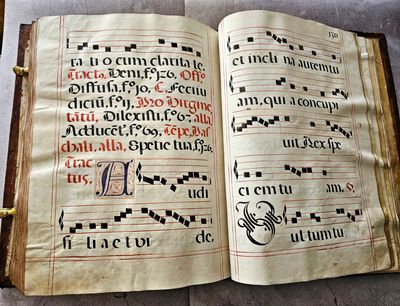 ra ti o cum claritate,
Tracto, Veni, f.º 126, Offo
Diffusa, f.º 130, C. Feci iu
diciũ, f.º 1, Pro Virgine
tãtũ, Dilexisti, f.º 67, alla
Adducẽt, f.º 69, Tẽpe Pas
chali, alla, Specie tua, f.º 126,
Trac
tus, A udi
fi li a et vi de,
130
et incli na aurem tu
am, qui a concupi
vit Rex spe
ci em tu am. ℣.
V ul tum tu